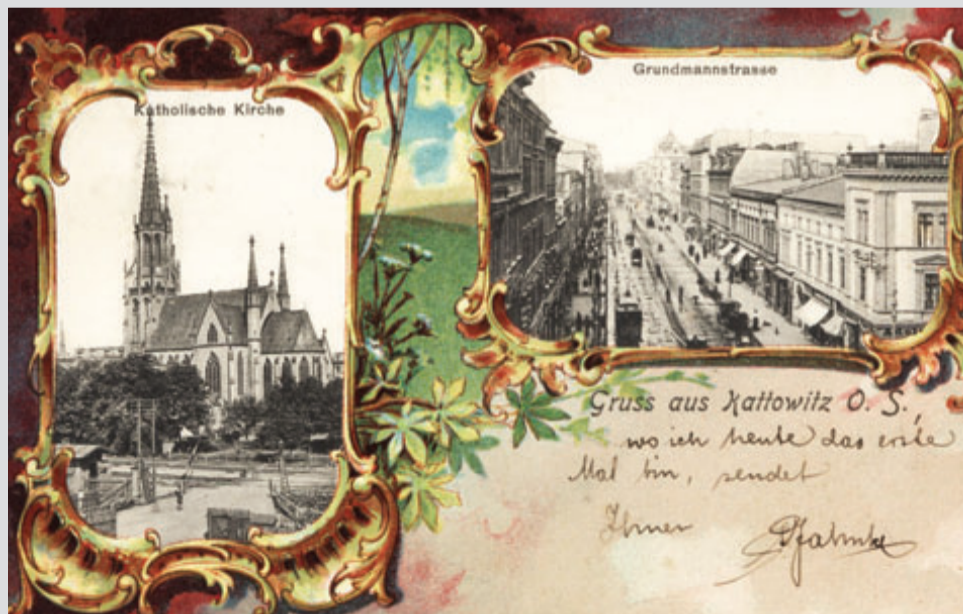 Katholische Kirche
Grundmannstrasse
Gruss aus Kattowitz O. S.,
wo ich heute das erste
Mal bin, sendet
Ihnen